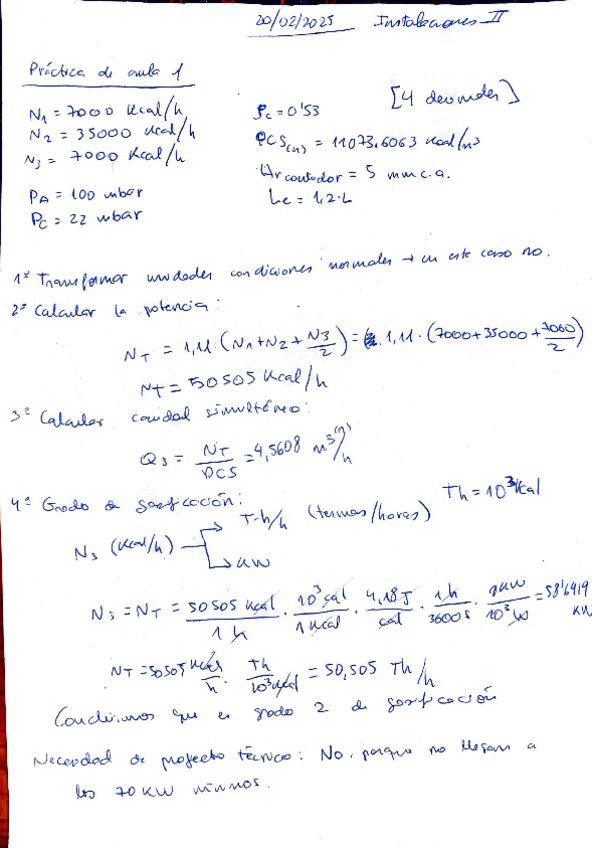 20/02/2025 Instalaciones II
Práctica de aula 1
N1 = 7000 Kcal/h
N2 = 35000 Kcal/h
N3 = 7000 Kcal/h
ρc = 0'53 [4 decimales]
PCS(n) = 11073,6063 Kcal/m³
Hr contador = 5 mm c.a.
Le = 1,2·L
PA = 100 mbar
PC = 22 mbar
1º Transformar unidades condiciones normales → en este caso no.
2º Calcular la potencia:
NT = 1,11·(N1+N2+N3/2) = 1,11·(7000+35000+7000/2)
NT = 50505 Kcal/h
3º Calcular caudal simultáneo:
Qs = NT/PCS = 4,5608 m³(n)/h
4º Grado de gasificación: Th = 10³ Kcal
Ns (Kcal/h) → Th/h (termas/horas)
→ KW
Ns = NT = 50505 Kcal/1 h · 10³ cal/1 Kcal · 4,18 J/cal · 1h/3600 s · 1KW/10³ W = 58'6419 KW
NT = 50505 Kcal/h · Th/10³ Kcal = 50,505 Th/h
Concluimos que es grado 2 de gasificación
Necesidad de proyecto técnico: No, porque no llegan a
los 70 KW mínimos.